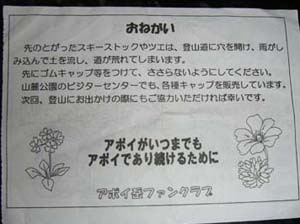 おねがい
先のとがったスキーストックやツエは、登山道に穴を開け、雨がし
み込んで土を流し、道が荒れてしまいます。
先にゴムキャップ等をつけて、ささらないようにしてください。
山麓公園のビジターセンターでも、各種キャップを販売しています。
次回、登山にお出かけの際にもご協力いただければ幸いです。
アポイがいつまでも
アポイであり続けるために
アポイ岳ファンクラブ